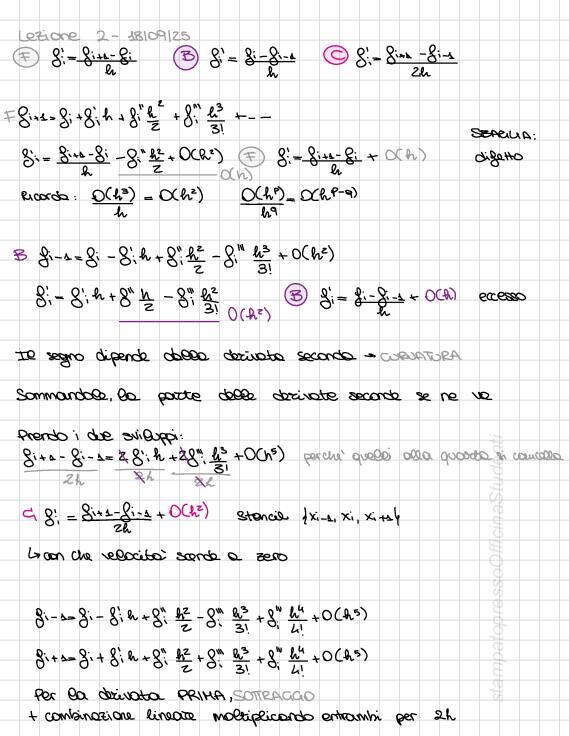 Lezione 2 - 18/09/25
(F) f'i = (fi+1 - fi)/h (B) f'i = (fi - fi-1)/h (C) f'i = (fi+1 - fi-1)/2h
F fi+1 = fi + f'i h + f''i h²/2 + f'''i h³/3! + --
SBAGLIA:
f'i = (fi+1 - fi)/h - f''i h²/2 + O(h²) O(h) (F) f'i = (fi+1 - fi)/h + O(h) difetto
Ricorda: O(h³)/h = O(h²) O(hᵖ)/h^q = O(h^p-q)
B fi-1 = fi - f'i h + f''i h²/2 - f'''i h³/3! + O(h²)
f'i = f'i h + f'' h/2 - f'''i h²/3! O(h²) (B) f'i = (fi - fi-1)/h + O(h) eccesso
Il segno dipende dalla derivata seconda → CURVATURA
Sommandole, la parte delle derivate seconde se ne va
Prendo i due sviluppi:
(fi+1 - fi-1)/2h = 2 f'i h/2h + 2 f'''i h³/3!/2h + O(h⁵) perché quella alla quarta si cancella
C f'i = (fi+1 - fi-1)/2h + O(h²) Stencil {xi-1, xi, xi+1}
↳ con che velocità scende a zero
fi-1 = fi - f'i h + f''i h²/2 - f'''i h³/3! + f''''i h⁴/4! + O(h⁵)
fi+1 = fi + f'i h + f''i h²/2 + f'''i h³/3! + f''''i h⁴/4! + O(h⁵)
Per la derivata PRIMA, SOTTRAGGO
+ combinazione lineare moltiplicando entrambi per 2h
stampatopressoOfficinaStudenti